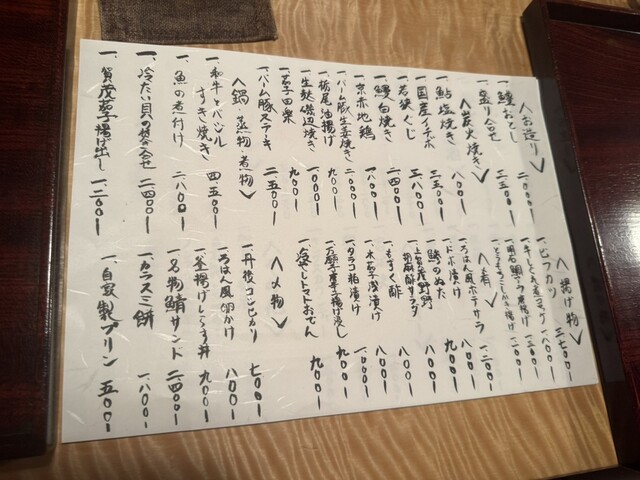 〈お造り〉
一、鱧おとし 二、〇〇〇
一、盛り合せ 三、三〇〇
〈炭火焼き〉
一、鮎塩焼き 一、八〇〇
一、国産イチボ 三、五〇〇
一、若狭ぐじ 三、八〇〇
一、鰻白焼き 二、四〇〇
一、京赤地鶏 一、八〇〇
一、バーム豚生姜焼き 二、〇〇〇
一、栃尾油揚げ 九〇〇
一、生麩磯辺焼き 一、〇〇〇
一、茄子田楽 九〇〇
一、バーム豚ステーキ 二、五〇〇
〈鍋・蒸物・煮物〉
一、和牛とバジル
すき焼き 四、五〇〇
一、魚の煮付け 二、八〇〇
一、冷たい貝の 二、四〇〇
一、賀茂茄子揚げ出し 一、二〇〇
〈揚げ物〉
一、ビフカツ 三、七〇〇
一、牛とん玉ネギコロッケ 一、八〇〇
一、明石鯛 唐揚げ 一、二〇〇
一、とうもろこしかき揚げ 一、二〇〇
〈肴〉
一、ろはん風ポテサラ 一、二〇〇
一、ドボ漬け 八〇〇
一、鯵のぬた 九〇〇
胡麻酢サラダ 八〇〇
一、もずく酢 八〇〇
一、水茄子浅漬け 八〇〇
一、タラコ粕漬け 一、〇〇〇
一、万願寺唐辛子揚げ浸し 九〇〇
一、冷やしトマトおでん 九〇〇
〈〆物〉
一、丹後コシヒカリ 七〇〇
一、ろはん風卵かけ 八〇〇
一、釜揚げしらす丼 九〇〇
一、名物鯖サンド 二、四〇〇
一、カラスミ餅 一、八〇〇
一、自家製プリン 五〇〇